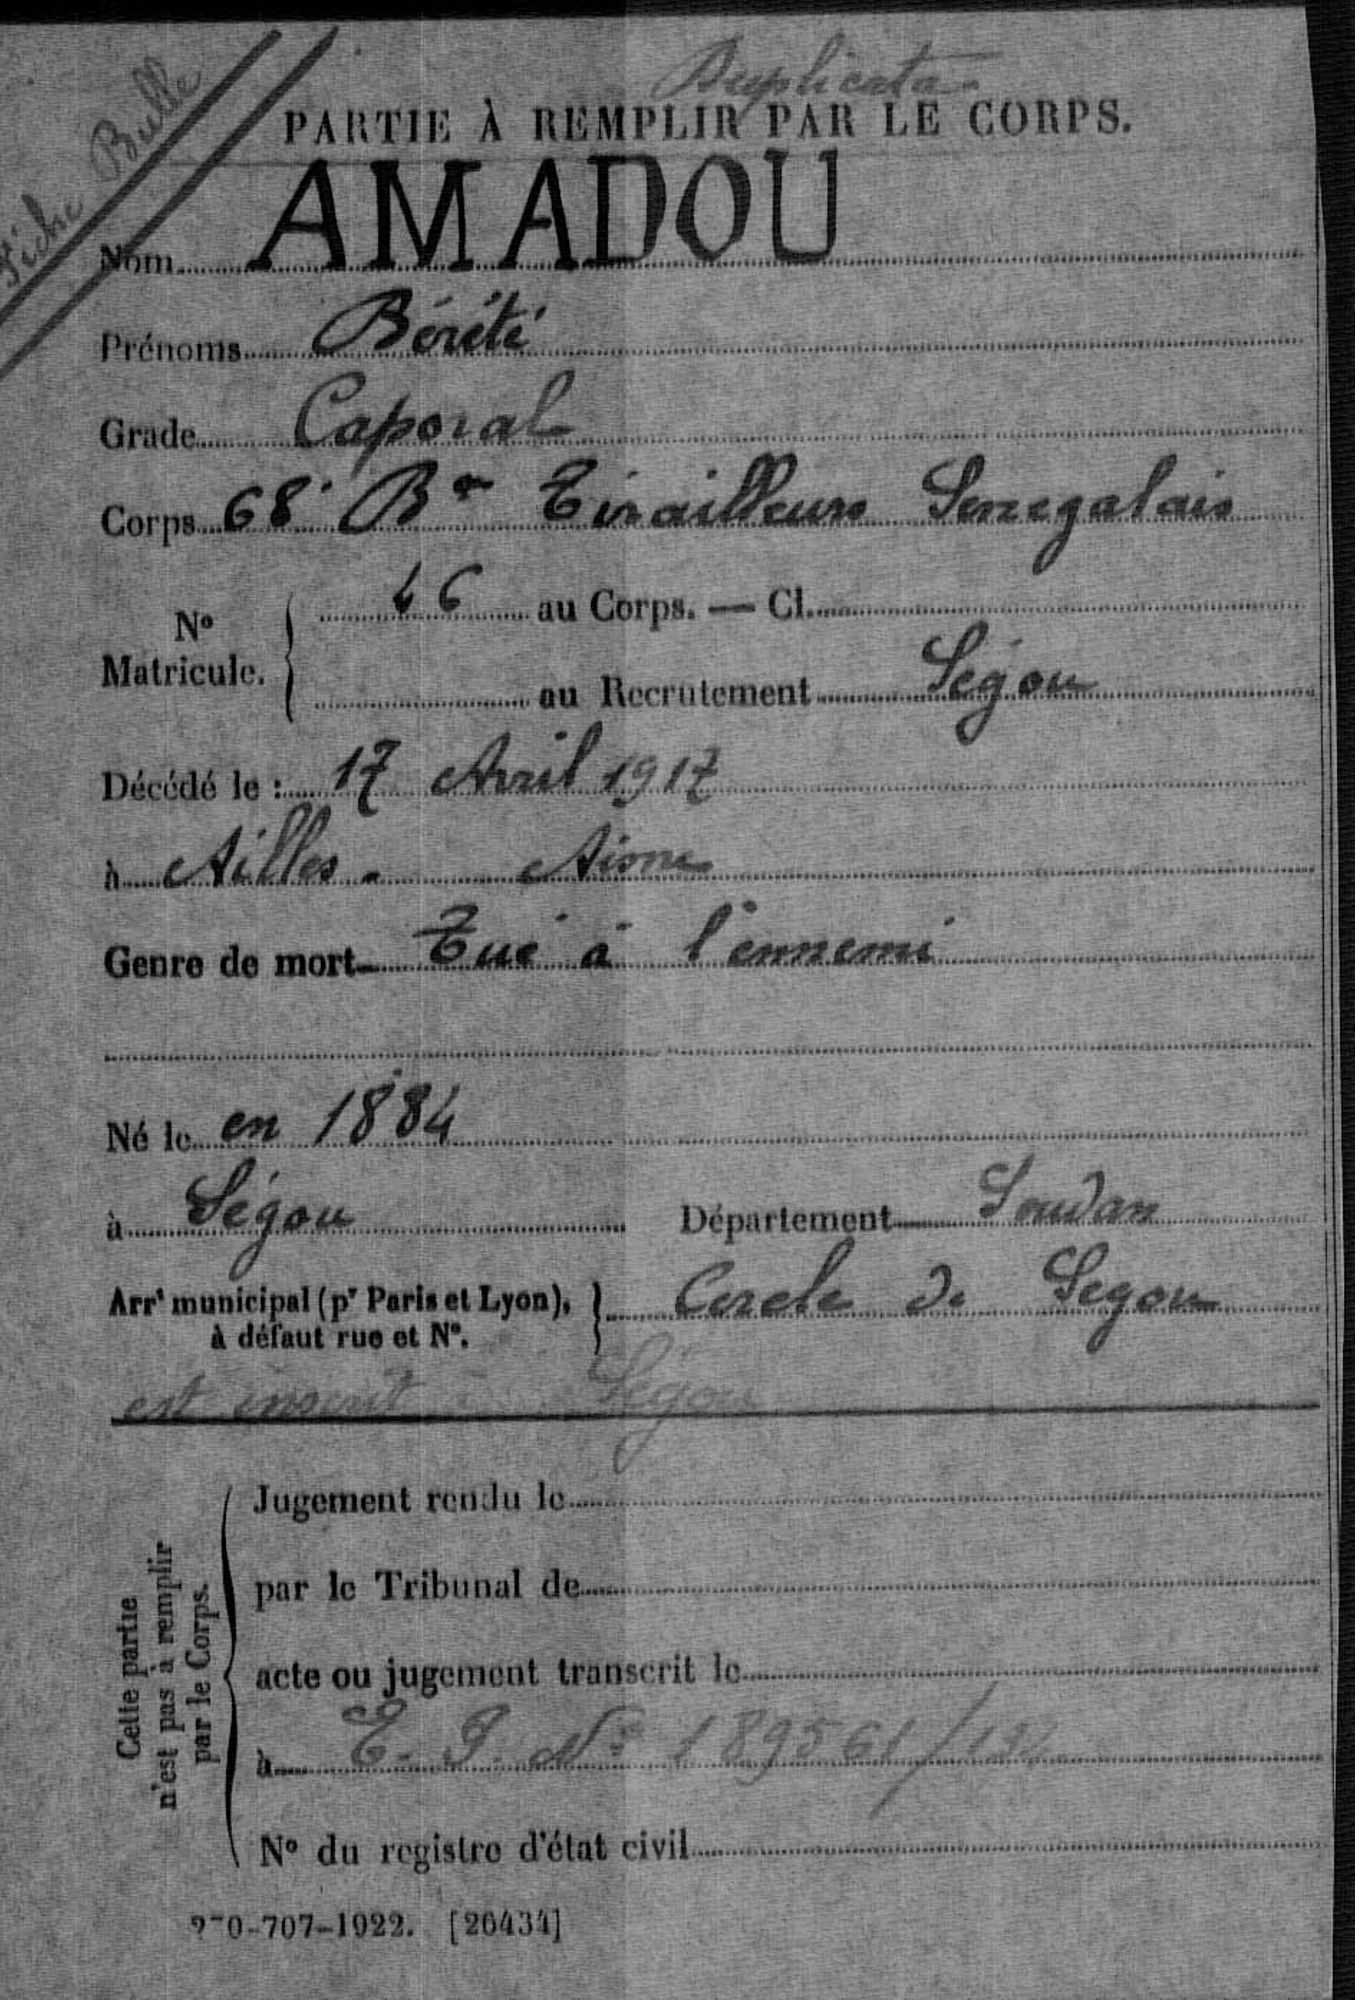 Duplicata
Fiche Bulle
PARTIE À REMPLIR PAR LE CORPS.
Nom AMADOU
Prénoms Bérété
Grade Caporal
Corps 68e Bon Tirailleurs Senegalais
No Matricule. 46 au Corps. — Cl.
au Recrutement Ségou
Décédé le : 17 Avril 1917
à Ailles - Aisne
Genre de mort Tué à l'ennemi
Né le en 1884
à Ségou Département Soudan
Arrt municipal (pr Paris et Lyon), à défaut rue et No. Cercle de Segou
est inscrit à Ségou
Cette partie n'est pas à remplir par le Corps.
Jugement rendu le
par le Tribunal de
acte ou jugement transcrit le
à E. P. No 189561/
No du registre d'état civil
-707-1922. [26434]